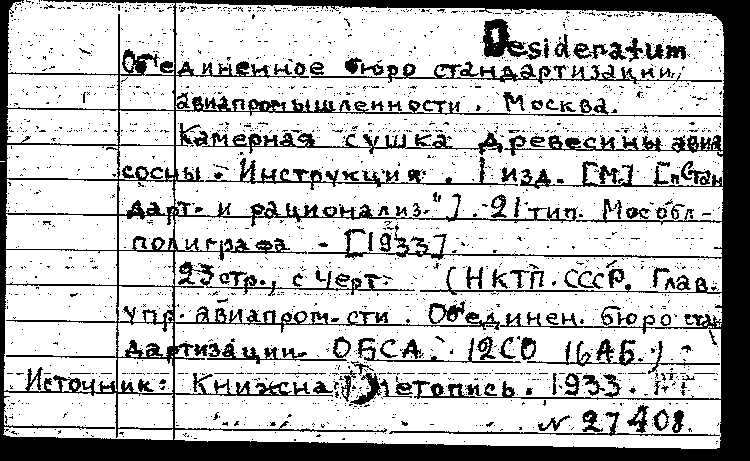 Desideratum
Об'единенное бюро стандартизации
авиапромышленности. Москва.
Камерная сушка древесины авиа
сосны. Инструкция. 1 изд. [М.] ["Стан
дарт. и рационализ."]. 21 тип. Мособл-
полиграфа - [1933].
23 стр., с черт. (НКТП. СССР. Глав.
упр. авиапром-сти. Об'единен. бюро стан
дартизации. ОБСА. 12СО 16АБ.) -
Источник: Книжная летопись. 1933.
N 27408.